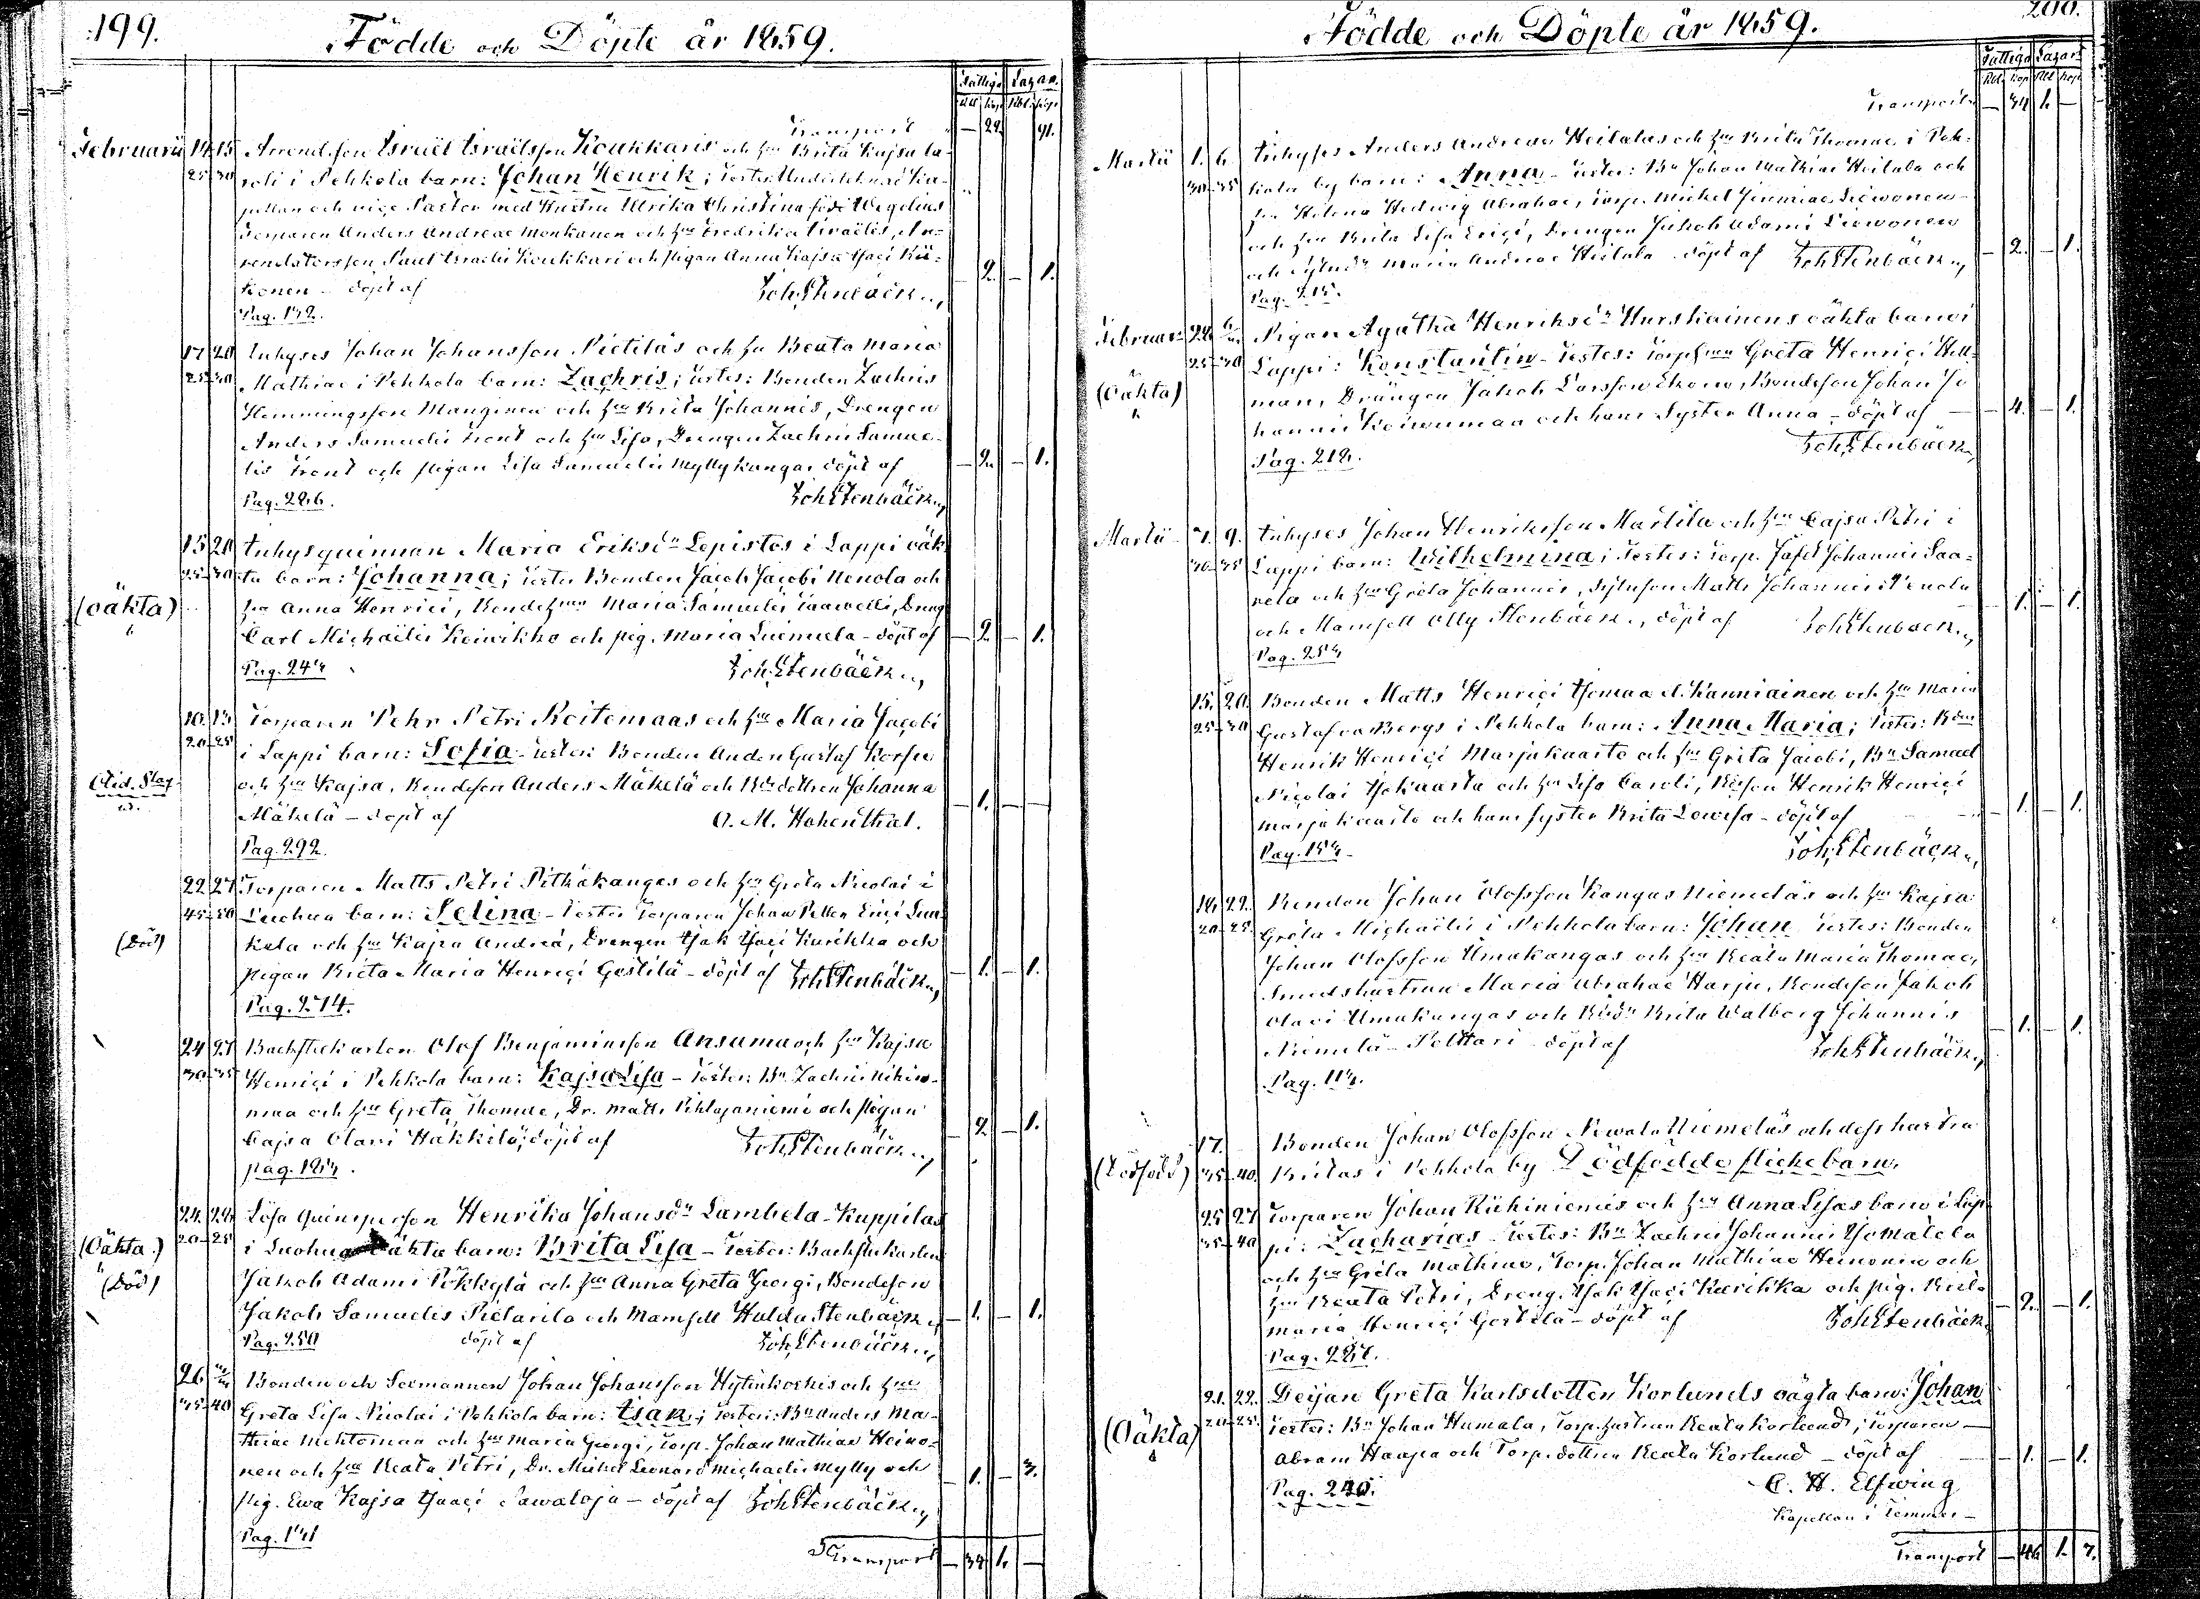 199.
Födde och Döpte år 1859.
Fattiga Lazar.
Rbl. Kop. Rbl. Kop.
Transport — 22. 91.
Februarii 14. 15. Arrend. son Israël Israëlsson Koukkaris och hu Brita Kajsa Ca-
25-30 roli i Pehkola barn: Johan Henrik; testes: Undertecknad Ka-
pellan och vice Pastor med Hustru Ulrika Christina född Wegelius
Torparen Anders Andreae Monkanen och hu Fredrika Israëlis, Ar-
rendatorsson Paul Israelis Koukkari och pigan Anna Kajsa Isaci
konen — döpt af Joh. Stenbäck — 2. — 1.
Pag. 132.
17. 20. Inhyses Johan Johansson Pietiläs och hu Beata Maria
25-30 Mathiae i Pehkola barn: Zachris; testes: Bonden Zachris
Hemmingsson Manginen och hu Brita Johannis, Drengen
Anders Samuelis Tront och hu Lisa, Drengen Zachris Samue-
lis Tront och pigan Lisa Samuelis Myllykangas döpt af — 2. — 1.
Pag. 226. Joh. Stenbäck
15. 20. Inhysquinnan Maria Eriksdr Lepistös i Lappi oäk-
25-30 ta barn: Johanna; testes Bonden Jacob Jacobi Nenola och
(oäkta) hu Anna Henrici, Bondehun Maria Samuelis, Dreng
Carl Michaëlis Keiwikko och pig. Maria — döpt af — 2. — 1.
Pag. 244 Joh. Stenbäck
10. 13. Torparen Pehr Petri Roitemaas och hu Maria Jacobi
20-25 i Lappi barn: Sofia — testes: Bonden Anders Gustaf Korsu
och hu Kajsa, Bondeson Anders Mäkelä och Bdedottren Johanna — 1. — —
Mäkelä — döpt af A. M. Hohenthal.
Pag. 292.
22. 27. Torparen Matts Petri Pitkäkangas och hu Greta Nicolai i
45-50 Luohua barn: Selina — testes Torparen Johan
(död) kala och hu Kajsa Andreae, Drengen Isak Isaci Karihka och
pigan Brita Maria Henrici Gestilä — döpt af Joh. Stenbäck — 1. — 1.
Pag. 274.
24. 27. Backstukarlen Olof Benjaminsson Ansama och hu Kajsa
30-35 Henrici i Pehkola barn: Kajsa Lisa — testes: Bn Zachris
maa och hu Greta Thomae, Dr. Matts Pihlajaniemi och pigan
Cajsa Olavi Häkkilä, döpt af Joh. Stenbäck — 2. — 1.
pag. 184.
24. 24. Lösa Quinsperson Henrika Johansdr Lambela-Kuppilas
20-25 (Oäkta.) i Luohua oäkta barn: Brita Lisa — testes: Backstukarlen
(död) Jakob Adami Pökkylä och hu Anna Greta Georgi, Bondeson
Jakob Samuelis Pietarila och Mamsell Hulda Stenbäck — 1. — 1.
Pag. 250 döpt af Joh. Stenbäck
26. Bonden och Sexmannen Johan Johansson Hytinkoskis och hu
35-40 Greta Lisa Nicolai i Pehkola barn: Isak; testes: Bn Anders Ma-
thiae Mehtomaa och hu Maria Georgi, Torp. Johan Mathiae Heino-
nen och hu Beata Petri, Dr. Mickel Leonard Michaelis Mylly och — 1. — 3.
pig. Ewa Kajsa Isaaci Sawaloja — döpt af Joh. Stenbäck
Pag. 141
Transport — 34. 1. —
200.
Födde och Döpte år 1859.
Fattiga Lazar.
Rbl. Kop. Rbl. Kop.
Transport — 34. 1. —
Martii 1. 6. Inhyses Anders Andreae Heilalas och hu Brita Thomae i Peh-
30-35 kola by barn: Anna — testes: Bn Johan Mathiae Heilala och
hu Helena Hedwig Abrahae, Torp. Mickel Jeremiae Siewonen
och hu Brita Lisa Erici, Drengen Jakob Adami Siewonen
och Anders Maria Andreae Heilala döpt af Joh. Stenbäck — 2. — 1.
Pag. 215.
Februar. 24. Pigan Agatha Henriksdr Hurskainens oäkta barn i
25-30 Lappi: Konstantin — testes: Torphun Greta Henrici Hell-
(Oäkta) man, Drängen Jakob Larsson Ekono, Bondeson Johan Jo-
hannis Koiwumaa och hans Syster Anna — döpt af — 4. — 1.
Joh. Stenbäck
Pag. 212.
Martii 7. 9. Inhyses Johan Henriksson Marttila och hu Cajsa Petri i
30-35 Lappi barn: Wilhelmina; testes: Torp. Jafet Johannis Saa-
rela och hu Greta Johannis, Matts Johannis Nenola — 1. — 1.
och Mamsell Olly Stenbäck, döpt af Joh. Stenbäck
Pag. 254
15. 20. Bonden Matts Henrici Kanniainen och hu Maria
25-30 Gustafva Bergs i Pehkola barn: Anna Maria; testes: Bden
Henrik Henrici Marjakaarto och hu Greta Jacobi, Bn Samuel
Nicolai Isokaarta och hu Lisa Caroli, Bdeson Henrik Henrici
Marjakaarto och hans syster Brita Lowisa — döpt af — 1. — 1.
Pag. 154. Joh. Stenbäck
14. 22. Bonden Johan Olofsson Kangas Niemeläs och hu Kajsa
20-25 Greta Michaëlis i Pehkola barn: Johan testes: Bonden
Johan Olofsson Umakangas och hu Beata Maria Thomae,
Smedshustrun Maria Abrahae Harju, Bondeson Jakob
Olavi Umakangas och Bdedr Brita Walborg Johannis — 1. — 1.
Niemelä Polttari döpt af Joh. Stenbäck
Pag. 114.
17. Bonden Johan Olofsson Newala Niemeläs och dess hustru
(Dödfödd) 35-40. Britas i Pehkola by Dödfödde flickebarn.
25. 27. Torparen Johan Kiihiniemis och hu Anna Lisas barn i Lap-
35-40 pi: Zacharias — testes: Bn Zachris Johannis Isomatela
och hu Greta Mathiae, Torp. Johan Mathiae Heinonen och
hu Beata Petri, Dreng. Isak Isaci Karihka och pig. Brita — 2. — 1.
Maria Henrici Gestilä — döpt af Joh. Stenbäck
Pag. 287.
21. 22. Deijan Greta Karlsdotter Korlunds oägta barn: Johan
(Oäkta) 20-25. testes: Bn Johan Humala, Torp. hustrun Beata Korlund, Torparen
Abram Haapa och Torp. dottren Beata Korlund — döpt af — 1. — 1.
Pag. 240. C. H. Elfwing
Kapellan i Temmes
Transport — 46. 1. 7.